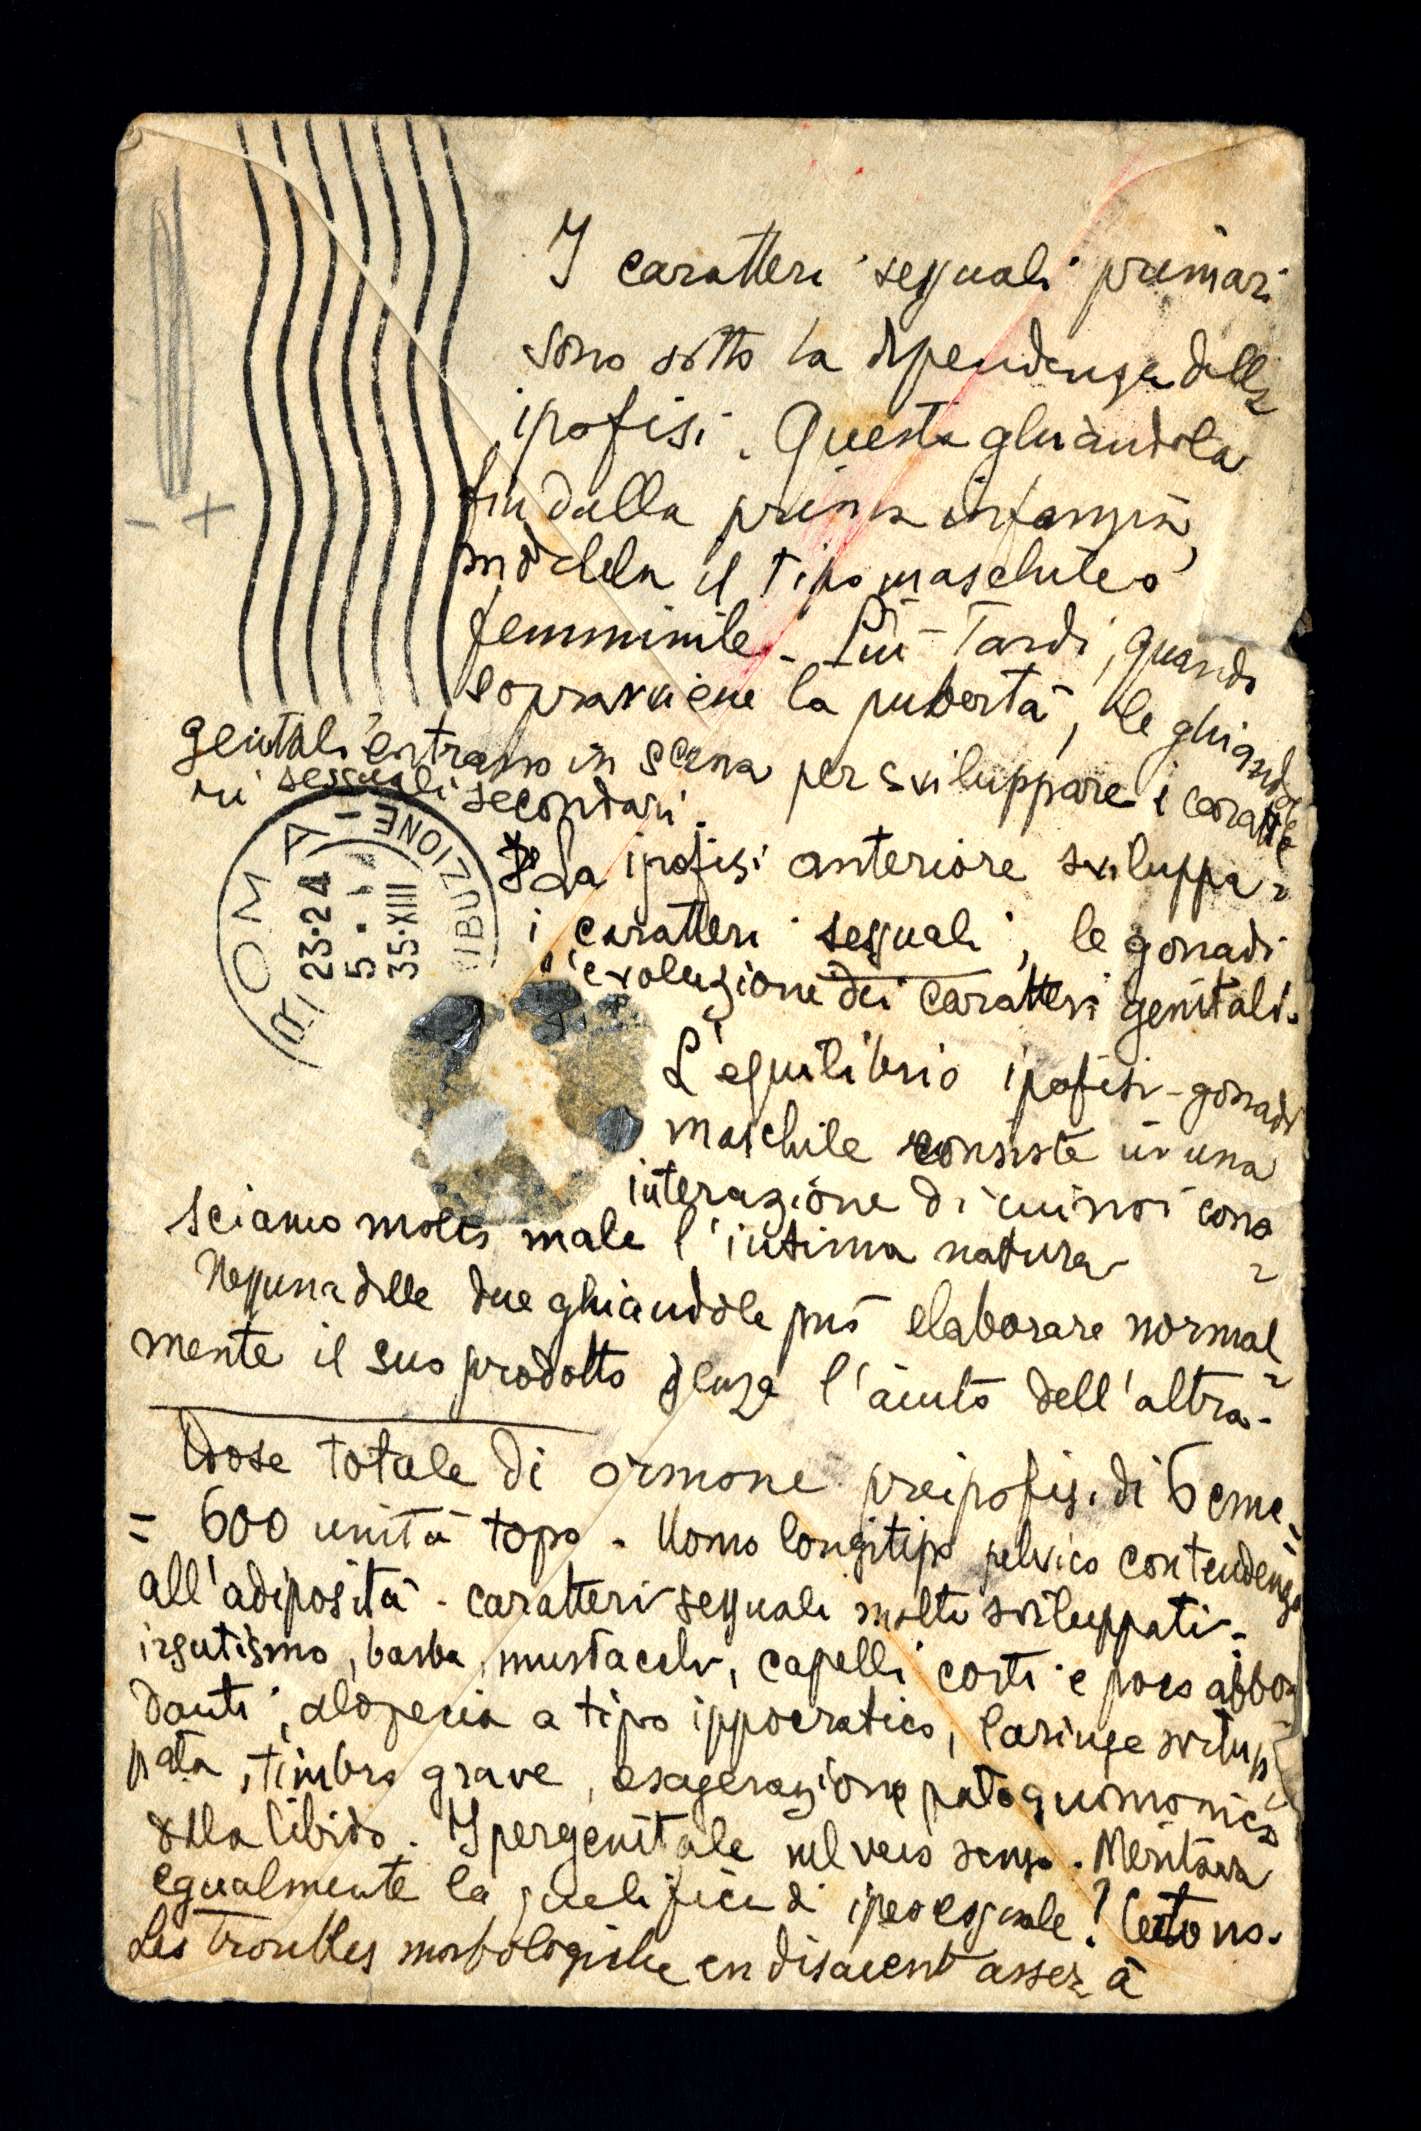 I caratteri sessuali primari
sono sotto la dipendenza della
ipofisi. Questa ghiandola
fin dalla prima infanzia,
modella il tipo maschile o
femminile - Più tardi, quando
sopravviene la pubertà, le ghiandole
genitali entrano in scena per sviluppare i caratte
ri sessuali secondari.
La ipofisi anteriore sviluppa
i caratteri sessuali, le gonadi
l'evoluzione dei caratteri genitali.
L'equilibrio ipofisi-gonadi
maschile consiste in una
interazione di cui noi cono
sciamo molto male l'intima natura
Nessuna delle due ghiandole può elaborare normal
mente il suo prodotto senza l'aiuto dell'altra.
Dose totale di ormone preipofis. di 6 cmc
= 600 unità topo. Uomo longitipo pelvico con tendenza
all'adiposità - caratteri sessuali molto sviluppati -
irsutismo, barba, mustacchi, capelli corti e poco abbon
danti, alopecia a tipo ippocratico, laringe svilup
pata, timbro grave, esagerazione patognomonica
della libido. Ipergenitale nel vero senso. Meritava
egualmente la qualifica di ipersessuale? Certo no.
Les troubles morfologiche en disaient assez à
ROMA - DISTRIBUZIONE
23·24
5 · I
35·XIII